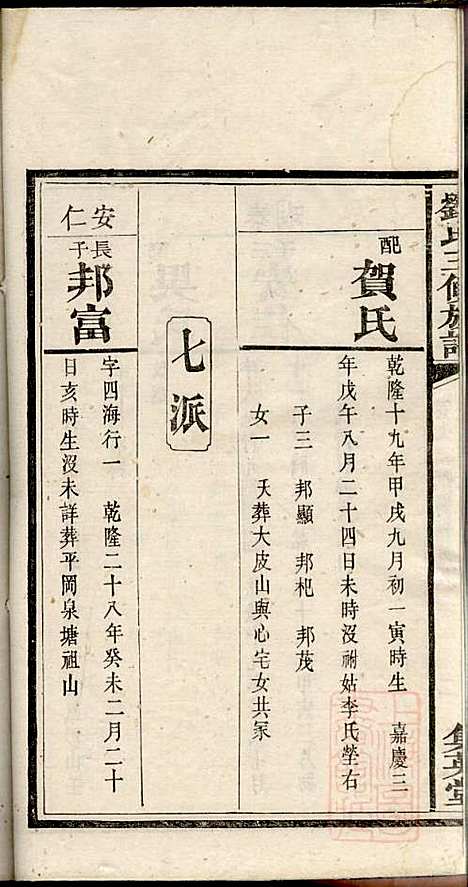 劉氏三修族譜
集英堂
配
賀氏
乾隆十九年甲戌九月初一寅時生　嘉慶三
年戊午八月二十四日未時沒祔姑李氏塋右
子三　邦顯　邦杞　邦茂
女一　夭葬大皮山與心宅女共冢
七派
安仁
長子
邦富
字四海行一　乾隆二十八年癸未二月二十
日亥時生沒未詳葬平岡泉塘祖山